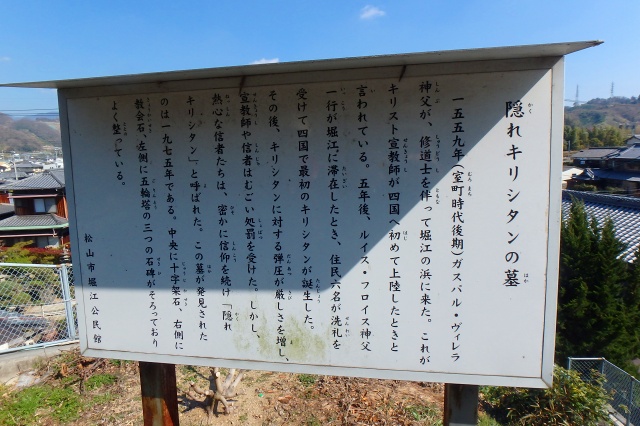 隠れキリシタンの墓
一五五九年(室町時代後期)ガスパル・ヴィレラ
神父が、修道士を伴って堀江の浜に来た。これが
キリスト宣教師が四国へ初めて上陸したときと
言われている。五年後、ルイス・フロイス神父
一行が堀江に滞在したとき、住民六名が洗礼を
受けて四国で最初のキリシタンが誕生した。
その後、キリシタンに対する弾圧が厳しさを増し、
宣教師や信者はむごい処罰を受けた。しかし、
熱心な信者たちは、密かに信仰を続け「隠れ
キリシタン」と呼ばれた。この墓が発見された
のは一九七五年である。中央に十字架石、右側に
教会石、左側に五輪塔の三つの石碑がそろっており
よく整っている。
松山市堀江公民館